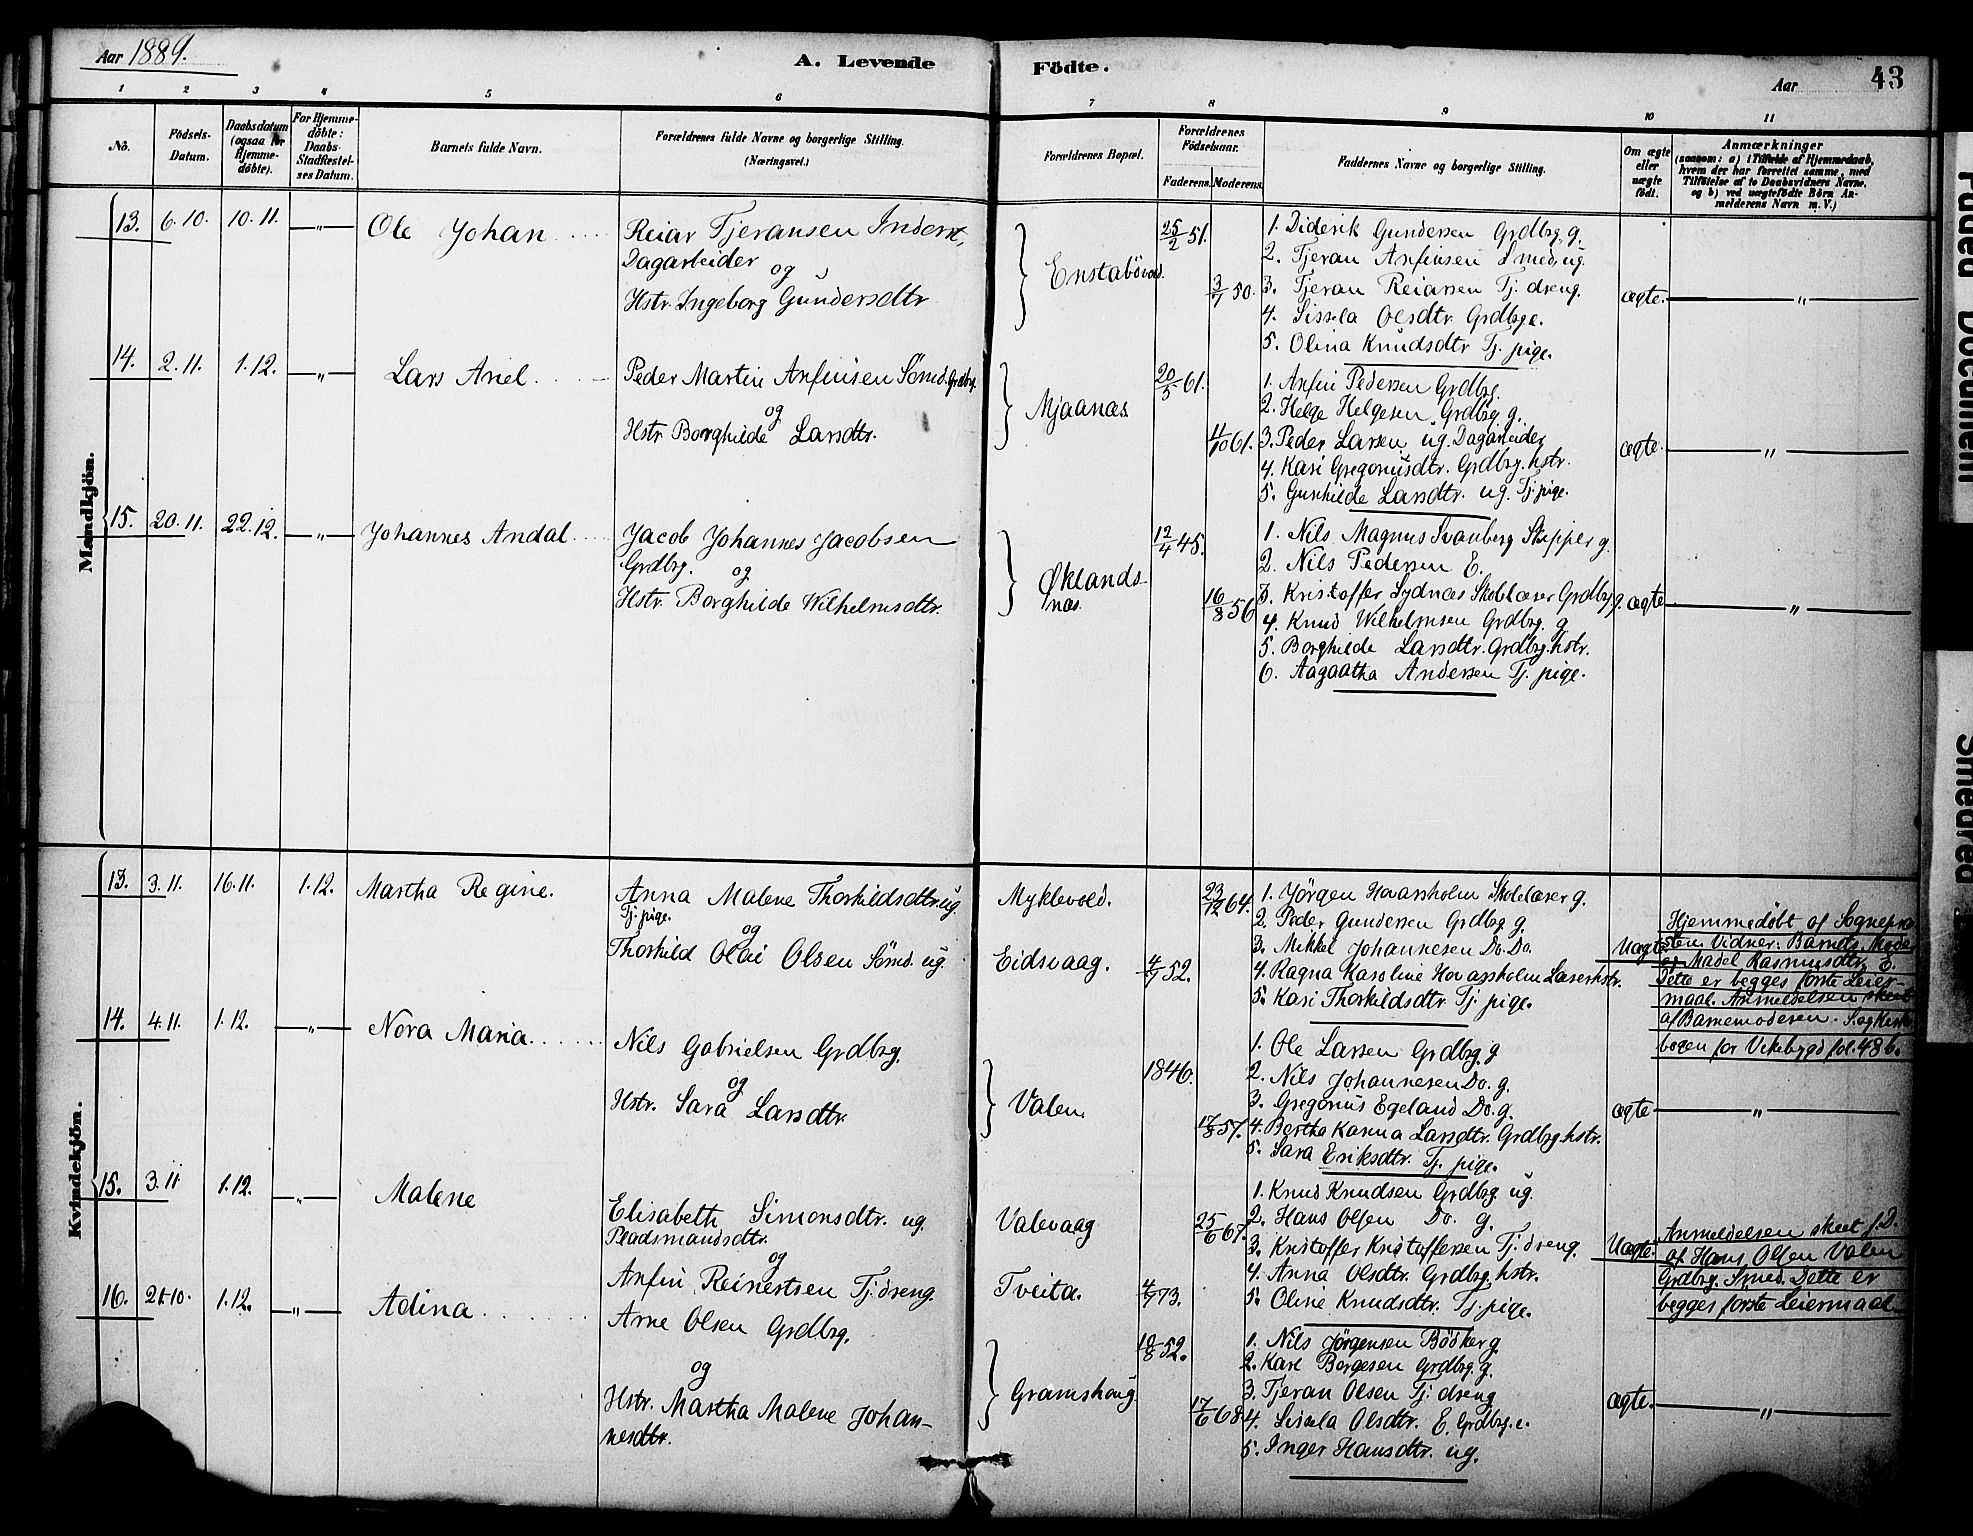 Aar 1889.
A. Levende Födte.
Aar
43
1 2 3 4 5 6 7 8 9 10 11
No.
Födsels-Datum.
Daabsdatum (ogsaa for Hjemme-döbte).
For Hjemme-döbte: Daabs-Stadfæstel-ses Datum.
Barnets fulde Navn.
Forældrenes fulde Navne og borgerlige Stilling.
(Næringsvei.)
Forældrenes Bopæl.
Forældrenes Födselsaar.
Faderens. Moderens.
Faddernes Navne og borgerlige Stilling.
Om ægte eller uægte födt.
Anmærkninger
(saasom: a) i Tilfælde af Hjemmedaab,
hvem der har forrettet samme, med
Tilföielse af to Daabsvidners Navne,
og b) ved uægtefödte Börn An-
melderens Navn m. V.)
Mandkjön.
13. 6.10. 10.11. —"— Ole Johan
Reiar Tjeransen Inderst,
Dagarbeider
og
Hstr. Ingeborg Gundersdtr
Enstabövold.
25/2 51.
3/7 50.
1. Diderik Gundersen Grdbrg. g.
2. Tjeran Anfinsen Smed, ug.
3. Tjeran Reiarsen Tj. dreng.
4. Sissela Olsdtr. Grdbrg e.
5. Olina Knudsdtr Tj. pige.
ægte. —"—
14. 2.11. 1.12. —"— Lars Ariel.
Peder Martin Anfinsen Sömd. Grdbrg.
og
Hstr. Borghilde Larsdtr.
Mjaanæs
20/5 61.
11/10 61.
1. Anfin Pedersen Grdbrg.
2. Helge Helgesen Grdbrg. g.
3. Peder Larsen ug. Dagarbeider
4. Kari Gregoriusdtr. Grdbrg. hstr.
5. Gunhilde Larsdtr. ug. Tj. pige.
ægte. —"—
15. 20.11. 22.12. —"— Johannes Andal
Jacob Johannes Jacobsen
Grdbrg.
og
Hstr. Borghilde Wilhelmsdtr.
Øklands-
næs.
12/4 45.
16/8 56
1. Nils Magnus Svanberg Skipper g.
2. Nils Pedersen E.
3. Kristoffer Lydnæs Skolelærer Grdbrg g.
4. Knud Wilhelmsen Grdbrg. g
5. Borghilde Larsdtr. Grdbrg. hstr.
6. Aagaatha Andersen Tj. pige.
ægte —"—
Kvindekjön.
13. 3.11. 16.11. 1.12. Martha Regine.
Anna Malene Thorkildsdtr. ug.
Tj. pige.
og
Thorkild Olai Olsen Sömd. ug.
Myklevold.
Eidsvaag.
23/12 64.
4/7 52.
1. Jörgen Hovarsholm Skolelærer g.
2. Peder Gundersen Grdbrg g.
3. Mikkel Johannesen Do. Do.
4. Ragna Karoline Hovarsholm Lærerhstr.
5. Kari Thorkildsdtr. Tj. pige.
Uægte
Hjemmedöbt af Sognepræ-
sten. Vidner: Barnets Moder
og Madel Rasmusdtr. E.
Dette er begges förste Leier-
maal. Anmeldelsen skeet
af Barnemoderen. S. og Kirke-
bogen for Vikebygd fol. 48 b.
14. 4.11. 1.12. —"— Nora Maria
Nils Gabrielsen Grdbrg.
og
Hstr. Sara Larsdtr.
Valen
1846.
1. Ole Larsen Grdbrg. g
2. Nils Johannesen Do. g.
3. Gregorius Egeland Do. g.
4. Bertha Karina Larsdtr. Grdbrg. hstr.
5. Sara Eriksdtr. Tj. pige.
ægte —"—
15. 3.11 1.12. —"— Malene
Elisabeth Simonsdtr. ug.
Pladsmandsdtr.
og
Anfin Reinertsen Tj. dreng.
Valevaag
Tveita.
25/6 67.
4/7 73.
1. Knud Knudsen Grdbrg. ug.
2. Hans Olsen Do. g.
3. Kristoffer Kristoffersen Tj. dreng.
4. Anna Olsdtr. Grdbrg. hstr.
5. Oline Knudsdtr. Tj. pige.
Uægte.
Anmeldelsen skeet s. D.
af Hans Olsen Valen
Grdbrg. Smed. Dette er
begges förste Leiermaal
16. 21.10. 1.12. —"— Adina.
Arne Olsen Grdbrg.
og
Hstr. Martha Malene Johan-
nesdtr.
Gramshaug.
10/8 52.
17/6 68
1. Nils Jörgensen Bödker g.
2. Karl Borgesen Grdbrg. g.
3. Tjeran Olsen Tj. dreng
4. Sissela Olsdtr. E. Grdbrg. e.
5. Inger Hansdtr. ug.
ægte. —"—
Faded Document
Smeared